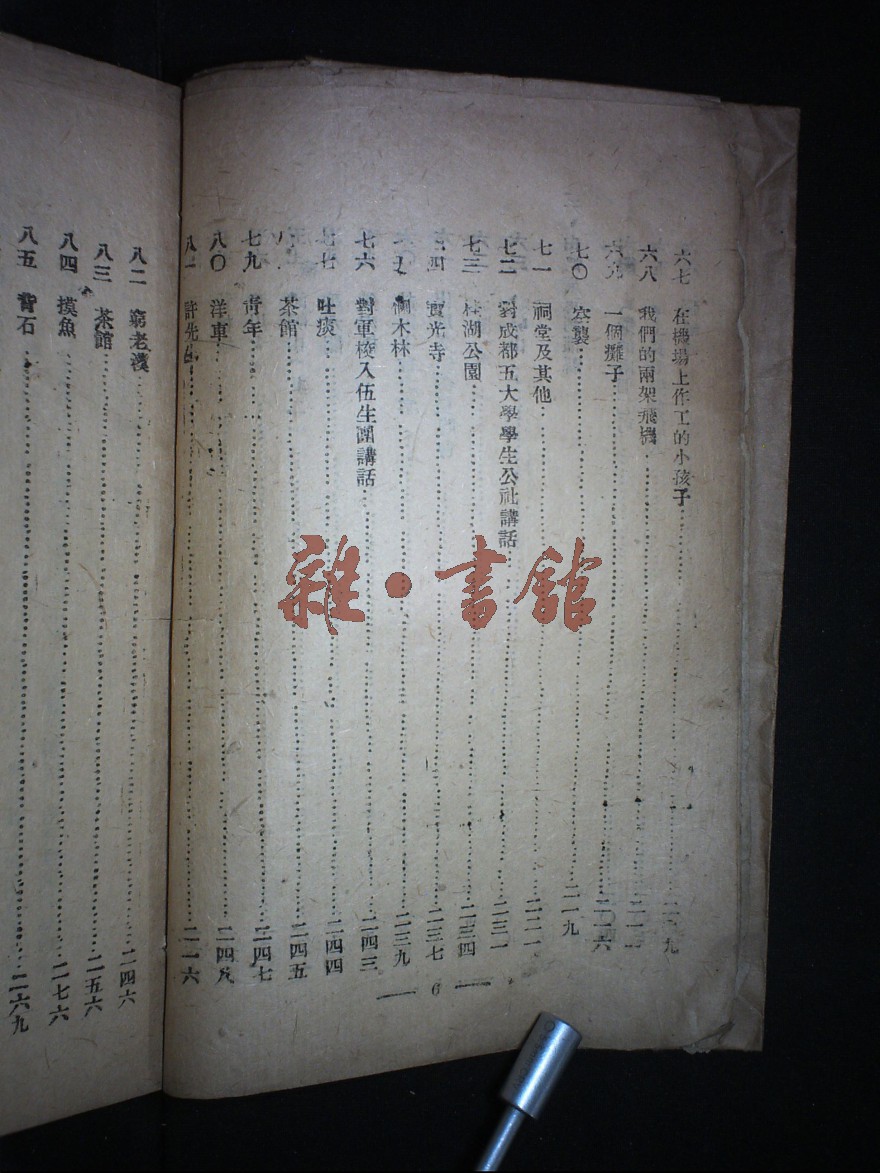 六七 在機場上作工的小孩子
六八 我們的兩架飛機
六九 一個攤子 二一六
七〇 窰襲 二一九
七一 祠堂及其他
七二 對成都五大學學生公社講話 二三一
七三 桂湖公園 二三四
寶光寺 二三七
木林 二三九
七六 對軍校入伍生團講話 二四三
七七 吐痰 二四四
茶館 二四五
七九 青年 二四七
八〇 洋車 二四八
許先生
八二 窮老漢 二四六
八三 茶館 二五六
八四 摸魚 二七六
八五 背石 二六九
6
雜·書館